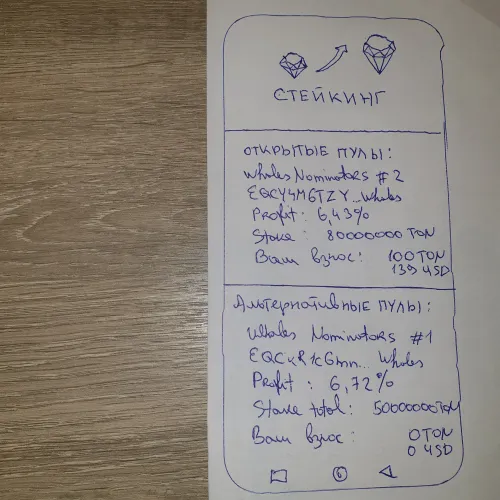 СТЕЙКИНГ
ОТКРЫТЫЕ ПУЛЫ:
Whales Nominators #2
EQCY4M6TZY...Whales
Profit: 6,43%
Stake: 80000000 TON
Ваш взнос: 100 TON
139 USD
Альтернативные пулы:
Whales Nominators #1
EQCkR1cGmn... Whales
Profit: 6,72%
Stake total: 50000000 TON
Ваш взнос: 0 TON
0 USD